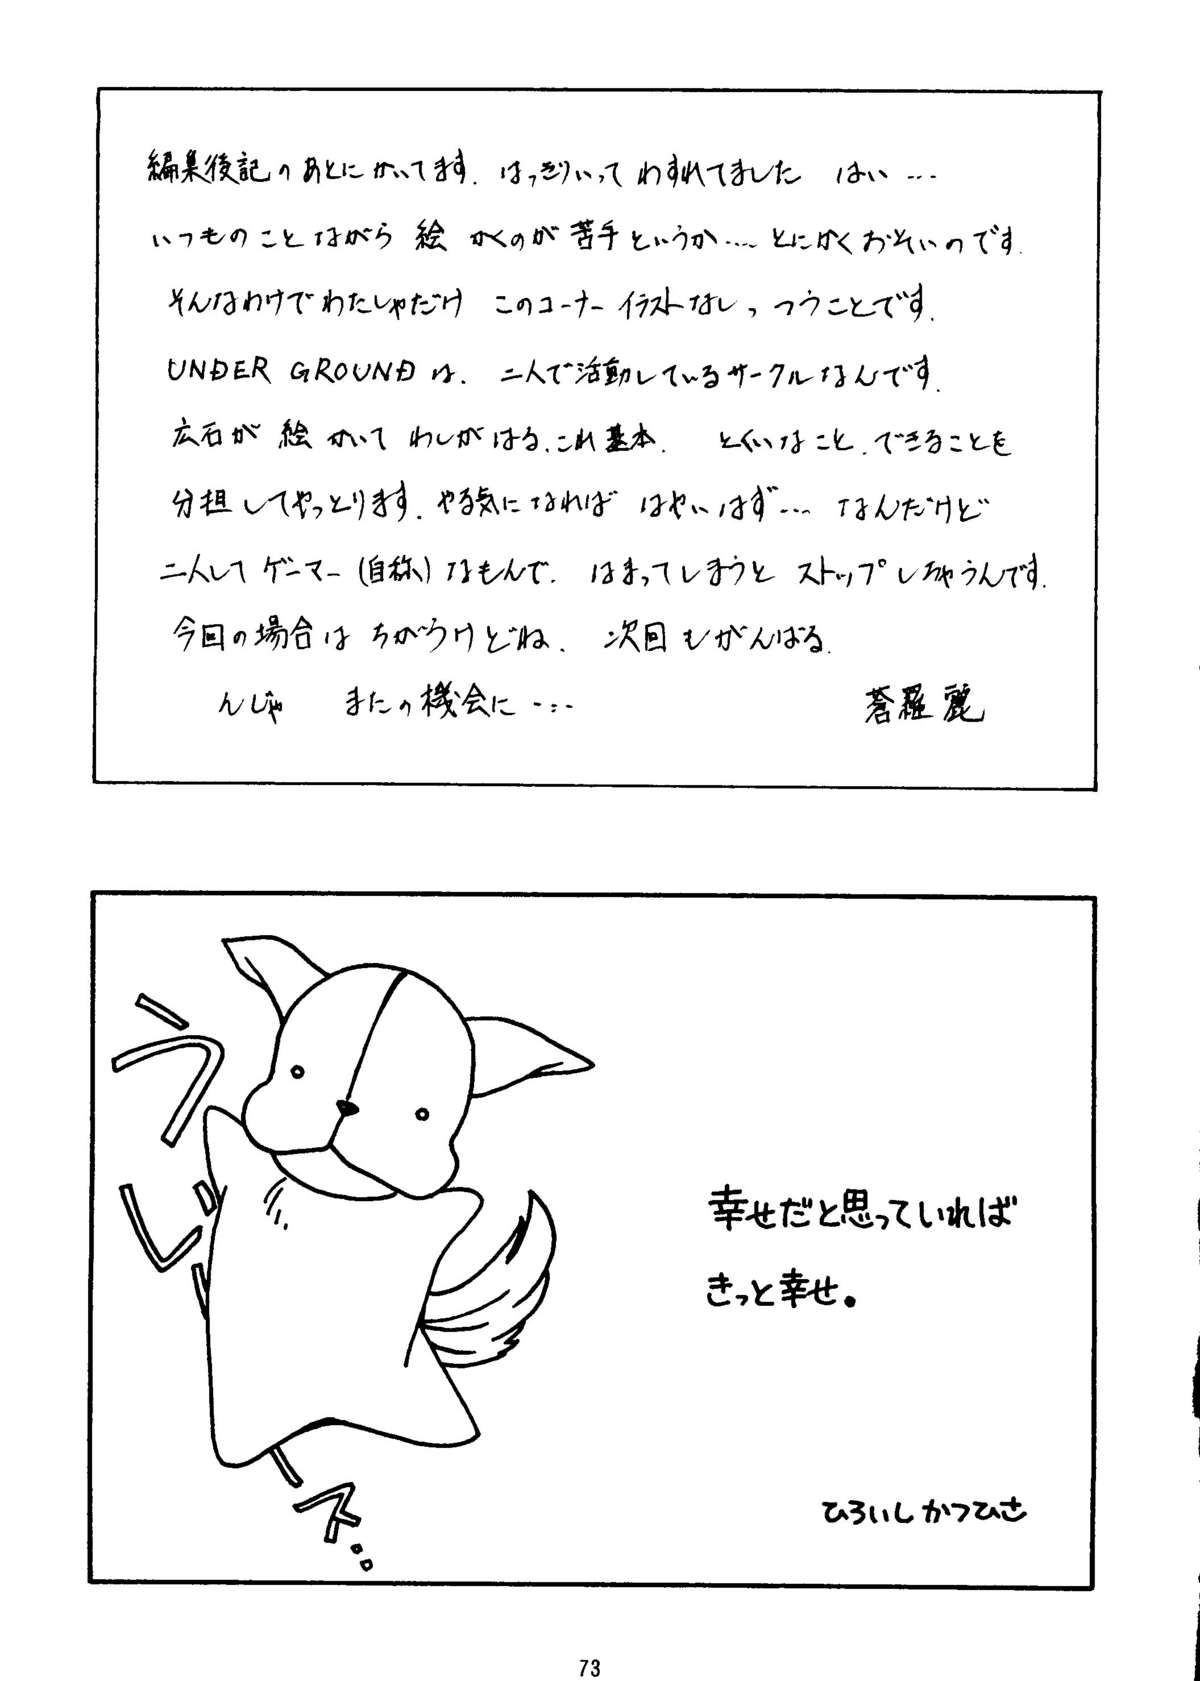 編集後記のあとにかいてます. はっきりいって わすれてました はい…
いつものことながら 絵 かくのが 苦手というか…. とにかくおそいのです.
そんなわけでわたしゃだけ このコーナー イラストなしっ つうことです.
UNDER GROUND は、二人で活動しているサークルなんです.
広石が 絵 かいて わしがはる、これ基本. とくいなこと、できることを
分担してやっとります. やる気になれば はやいはず…. なんだけど
二人して ゲーマー(自称)なもんで、はまってしまうと ストップしちゃうんです.
今回の場合は ちがうけどね、 次回もがんばる.
んじゃ またの機会に….
蒼羅 麗
幸せだと思っていれば
きっと幸せ。
ひろいし かつひさ
73